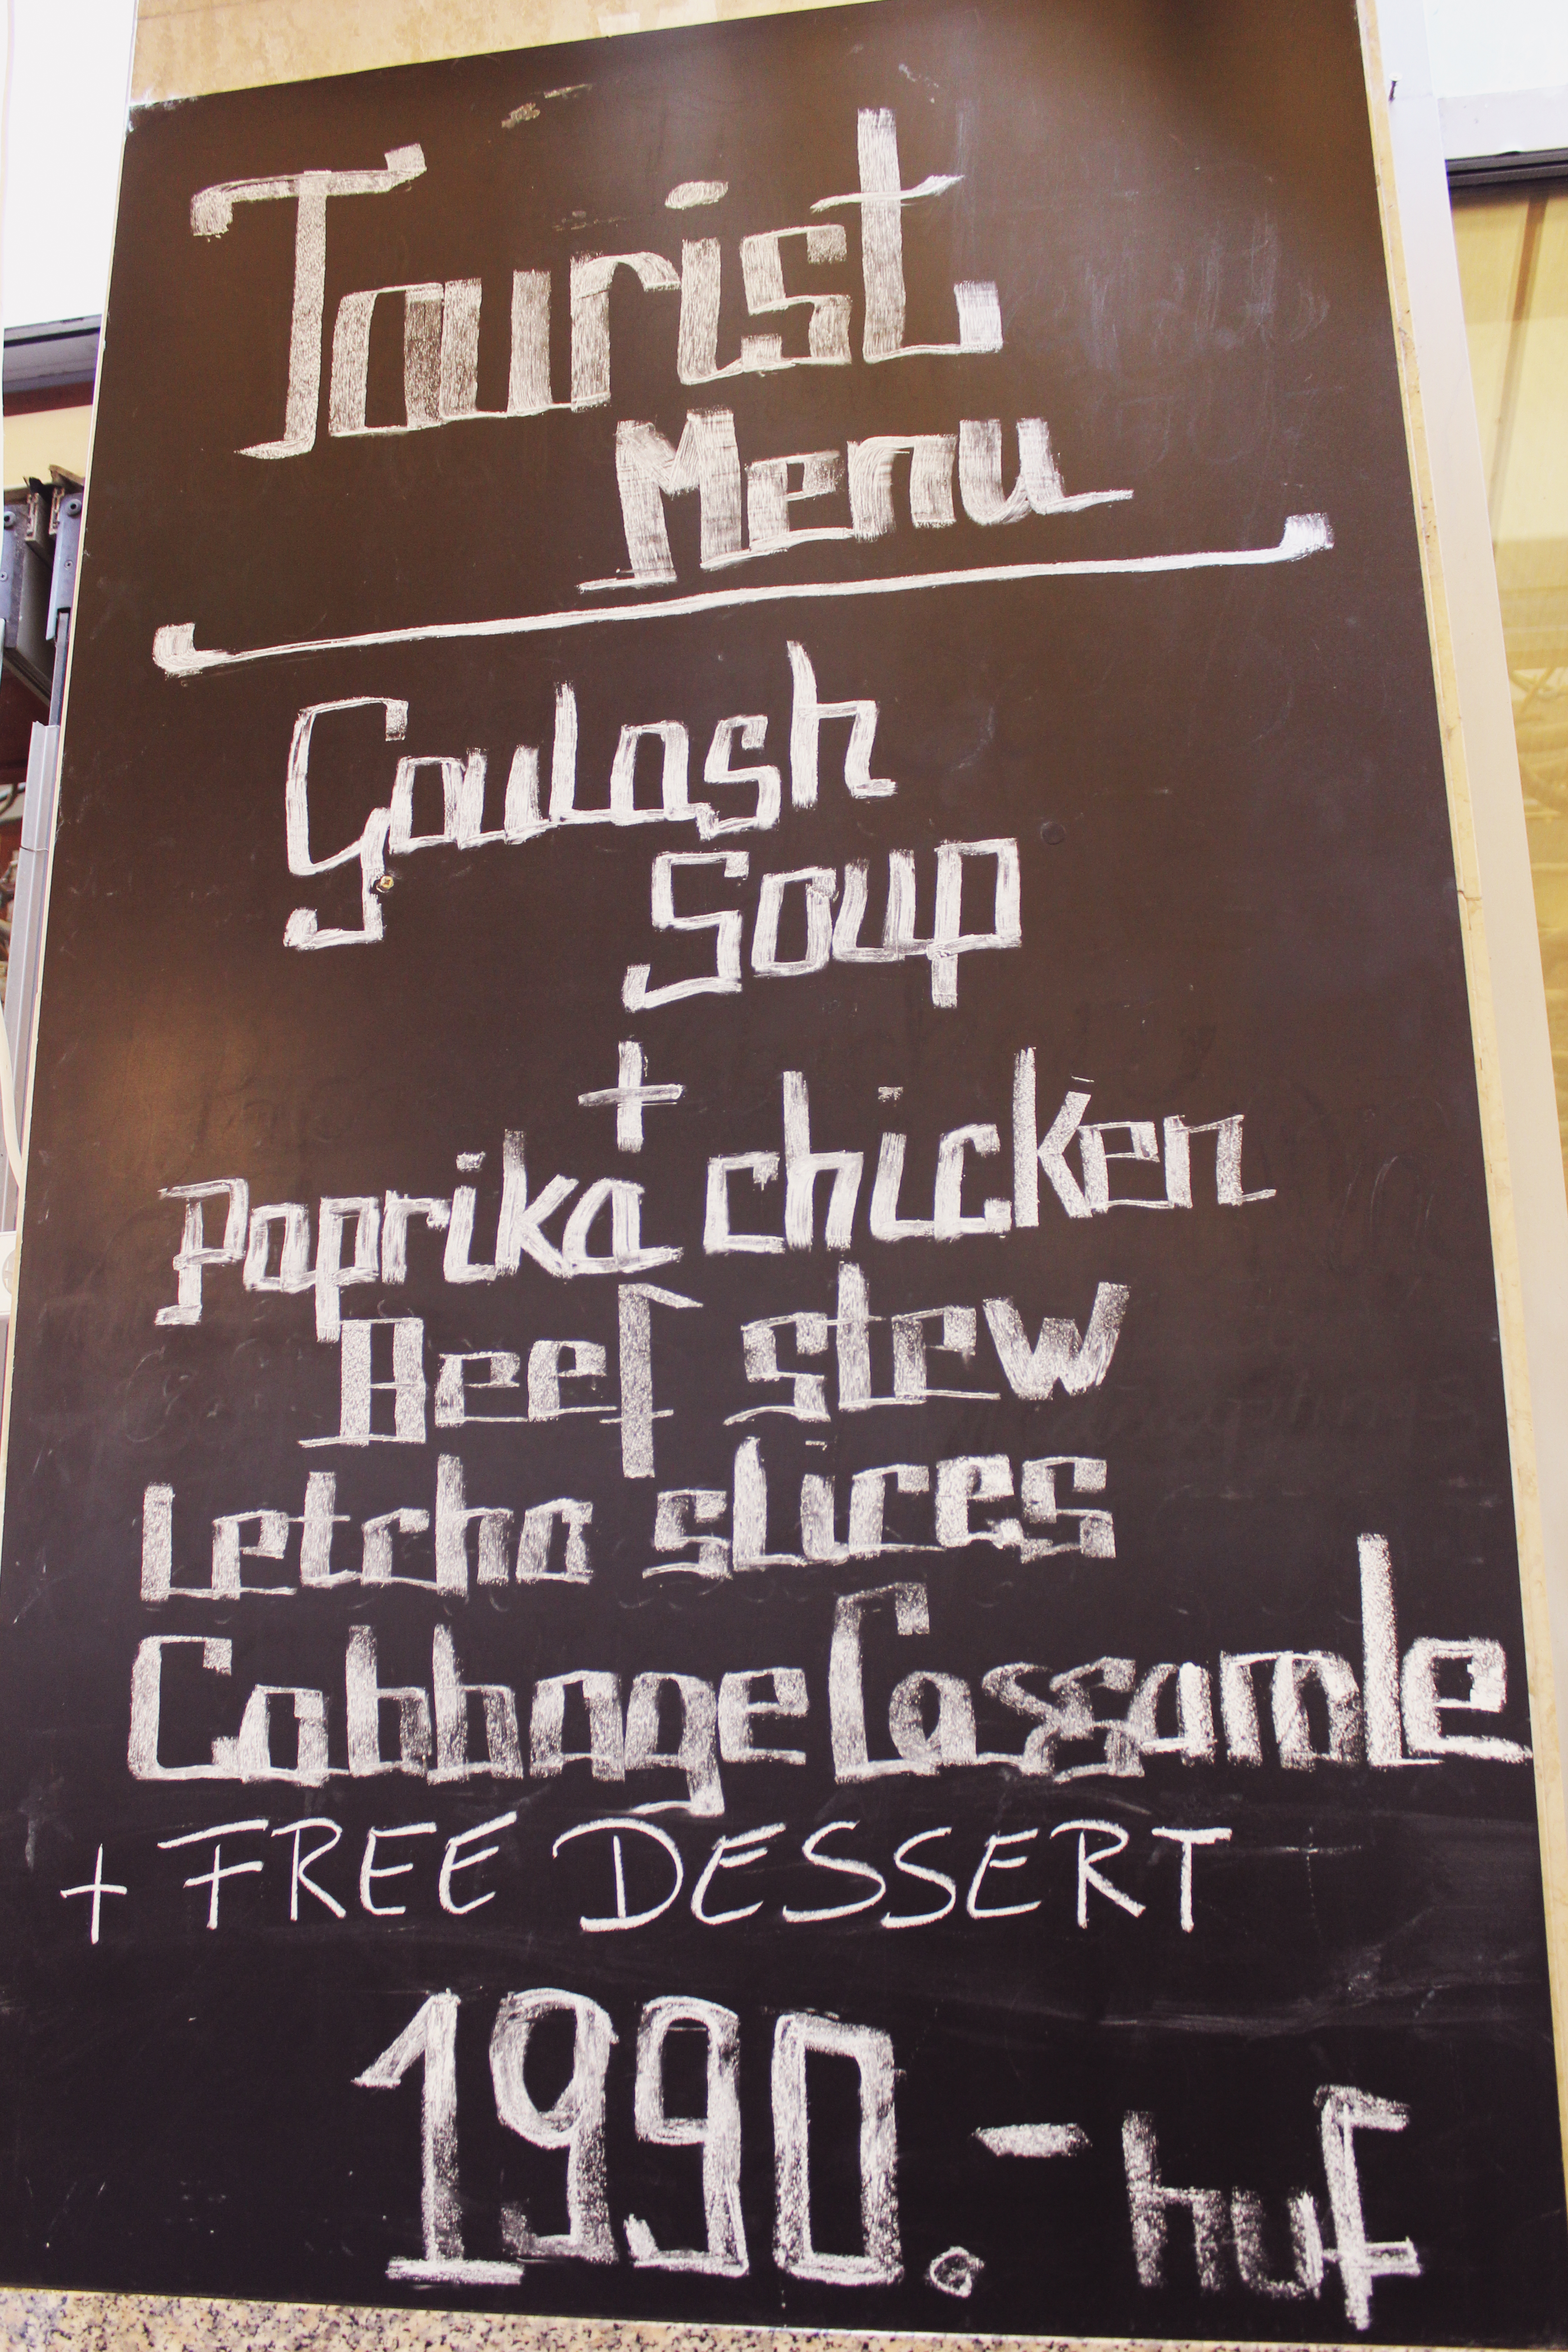 Tourist
Menu
Goulash
Soup
+
Paprika chicken
Beef stew
Letcho slices
Cabbage Cassarole
+ FREE DESSERT
1990.- huf